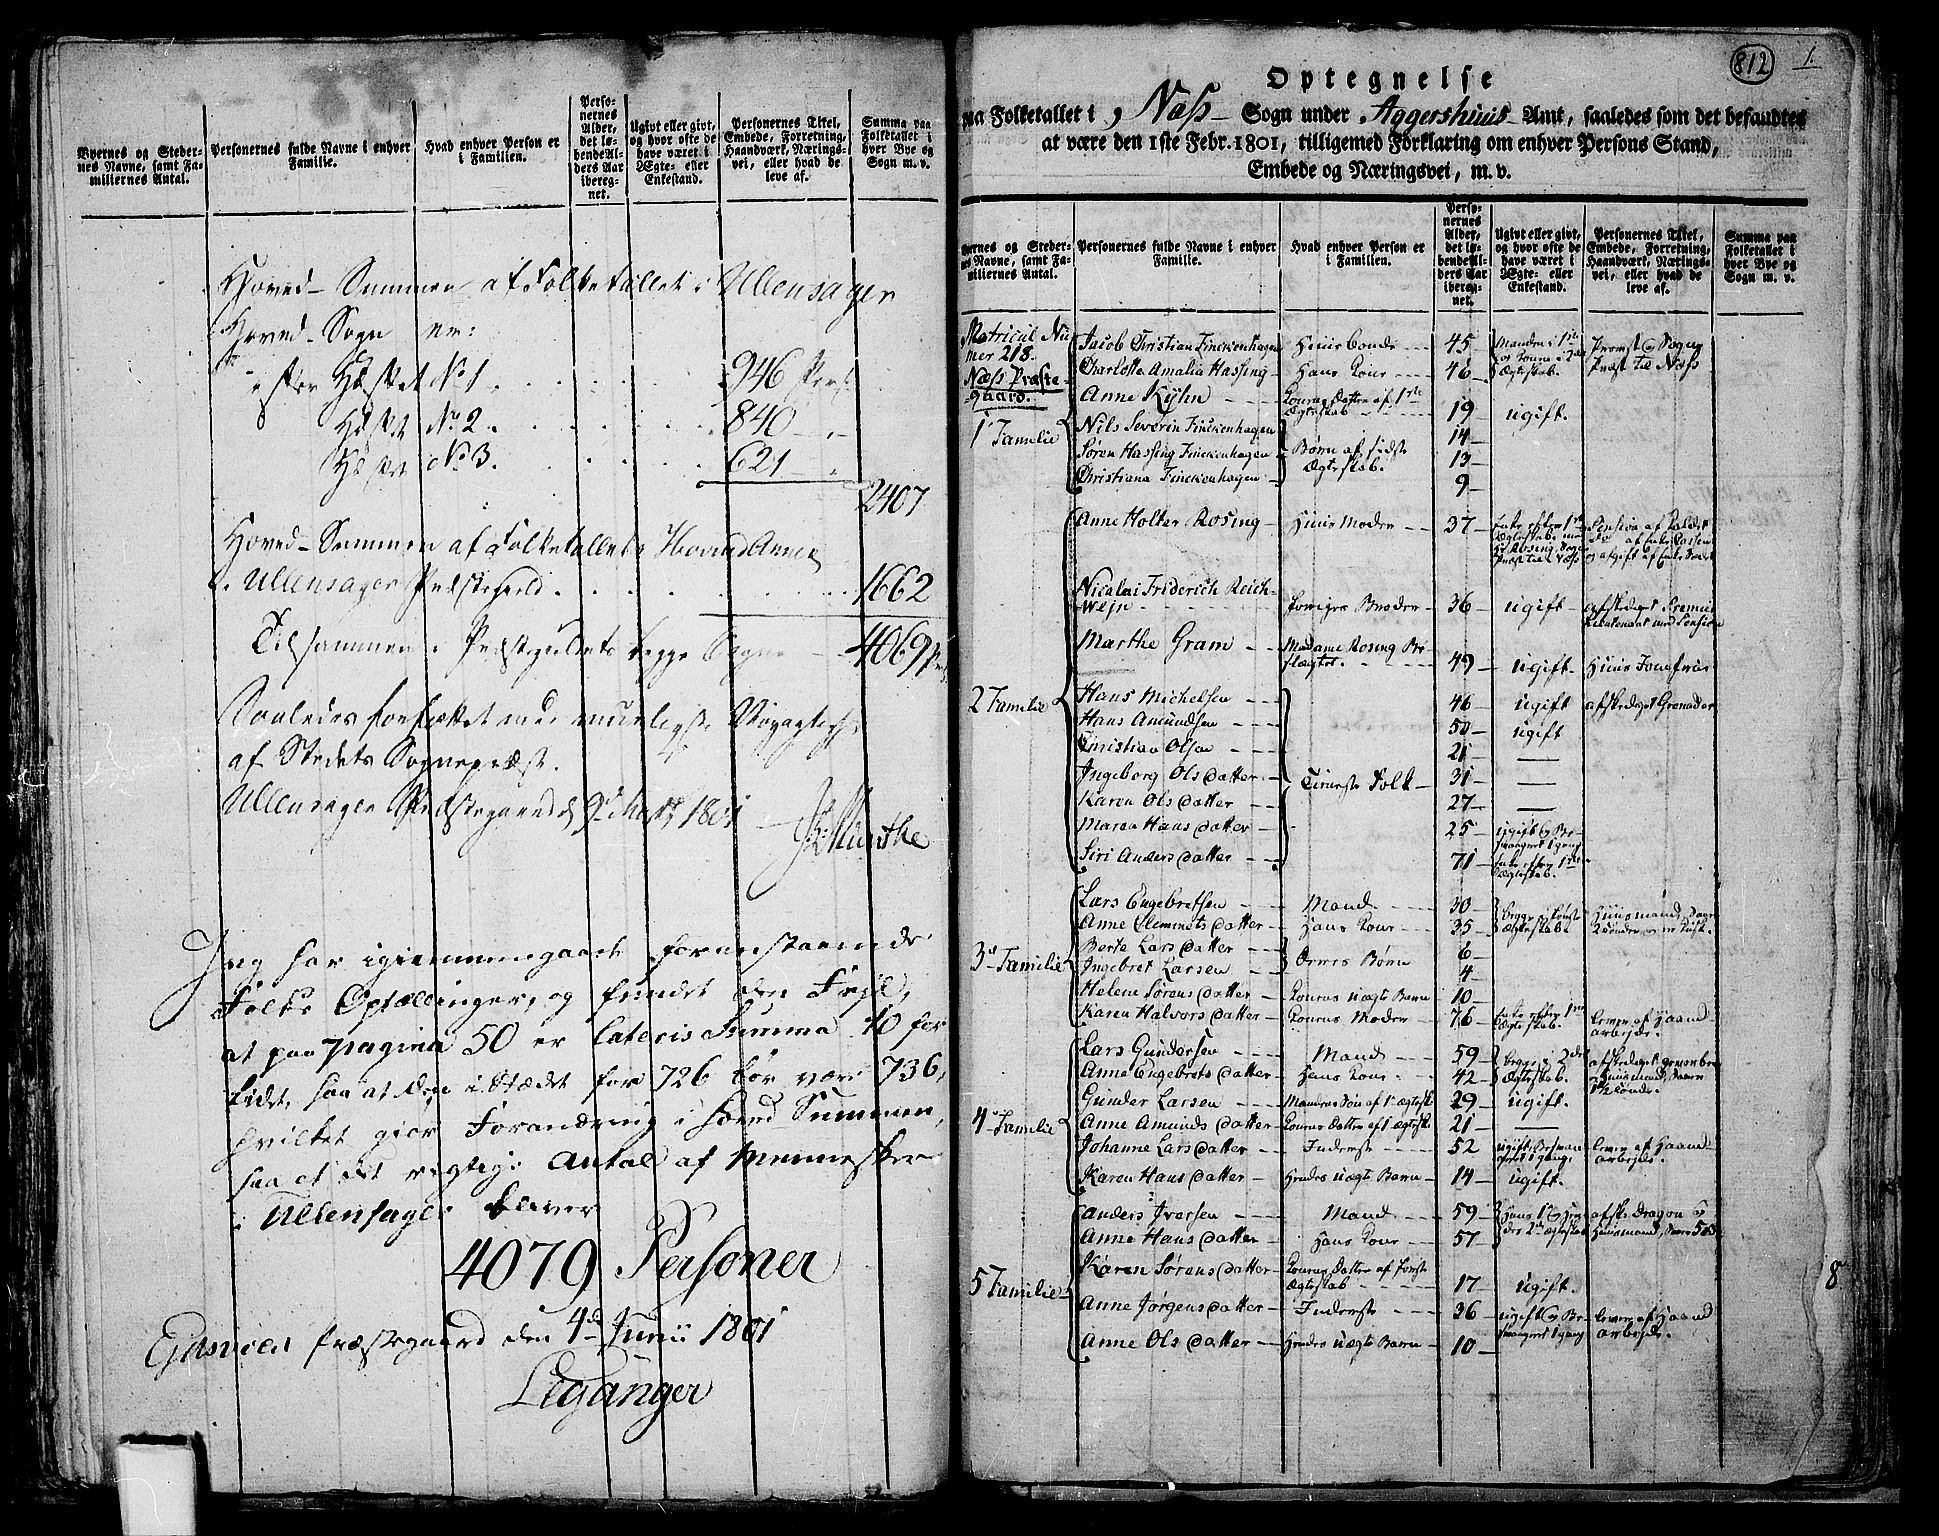 Byernes og Steder-
nes Navne, samt Fa-
miliernes Antal.
Personernes fulde Navne i enhver
Familie.
Hvad enhver Person er
i Familien.
Perso-
nernes
Alder,
det lø-
bende Al-
ders Aar
iberег-
net.
Ugivt eller givt,
og hvor ofte de
have været i
Ægte- eller
Enkestand.
Personernes Titel,
Embede, Forretning,
Haandværk, Nærings-
vei, eller hvad de
leve af.
Summa paa
Folketallet i
hver Bye og
Sogn m. v.
Hoved-Summen af Folketallet i Ullensager
Hoved-Sogn er:
efter Hæftet No 1 946 Pers:
Hæftet No 2. 840
Hæftet No 3. 621
2407
Hoved-Summen af Folketallet i Hovind Annex
i Ullensager Præstegield 1662
Tilsammen i Præstegieldets begge Sogne 4069 Pers:
Saaledes forfattet med muligste Nøyagtighed
af Stedets Sognepræst.
Ullensager Præstegaard d 9de 1801
Munthe
Jeg har igiennemgaaet foranstaaende
Folke Optællinger, og fundet den Feyl,
at paa pagina 50 er lateris Summa 10 for
lidet, saa at den i Stædet for 726 bør være 736,
hvilket giør Forandring i hoved Summen,
saa at det rigtige Antal af Mennesker
i Ullensager bliver
4079 Personer
Præstegaard den 4de Junii 1801
Leganger
812
1.
Optegnelse
paa Folketallet i Næss Sogn under Aggershuus Amt, saaledes som det befandtes
at være den 1ste Febr. 1801, tilligemed Forklaring om enhver Persons Stand,
Embede og Næringsvei, m. v.
Byernes og Steder-
nes Navne, samt Fa-
miliernes Antal.
Personernes fulde Navne i enhver
Familie.
Hvad enhver Person er
i Familien.
Perso-
nernes
Alder,
det lø-
bende Al-
ders Aar
ibereg-
net.
Ugivt eller givt,
og hvor ofte de
have været i
Ægte- eller
Enkestand.
Personernes Titel,
Embede, Forretning,
Haandværk, Nærings-
vei, eller hvad de
leve af.
Summa paa
Folketallet i
hver Bye og
Sogn m. v.
Matricul Nu
mer 218.
Næss Præste-
gaard.
1 Familie
Jacob Christian Finckenhagen Huusbonde 45 Manden i 1ste og Konen i 2det Ægteskab. Provst og Sogne Præst til Næss
Charlotte Amalia Hassing Hans Kone 46
Anne Kyhn Konens Datter af 1ste Ægteskab 19 ugift.
Nils Severin Finckenhagen 14
Søren Hassing Finckenhagen Børn af sidste Ægteskab. 13
Christiana Finckenhagen 9
2 Familie
Anne Holter Rosing Huus Moder 37 Enke efter 1ste Ægteskab med Hr Rosing Sogne Præst til Næss
Nicolai Friderich Reich-
wejn forriges Broder 36 ugift afskediget Premier Lieutenant med Pension
Marthe Gram Madame Rosing Be-
slægtet. 49 ugift Huus Jomfrue
Hans Michelsen 46 ugift afskediget Grenader
Hans Amundsen 50 ugift
Christian Olsen 21
Ingeborg Olsdatter Tieneste Folk 31
Karen Olsdatter 27
Maren Hansdatter 25 ugift og Be-
svangret 1 gang
Siri Andersdatter 71 Enke efter 1ste
Ægteskab.
3 Familie
Lars Engebretsen Mand 30 begge i første Ægteskab. Huusmand,
Anne Clemmetsdatter Hans Kone 35
Berte Larsdatter Deres Børn 6
Ingebret Larsen 4
Helene Sørensdatter Konens uægte Barn 10
Karen Halvorsdatter Konens Moder 76 Enke efter 1ste
Ægteskab. lever af Haand
arbejde.
4 Familie
Lars Gundersen Mand 59 begge i 2det Ægteskab.
Anne Engebretsdatter Hans Kone 42
Gunder Larsen Mandens Søn af 1 ægtesk 29 ugift.
Anne Amundsdatter Konens Datter af 1 ægtesk 21
Johanne Larsdatter Inderste 52 ugift, Besvan-
gret 1 gang. lever af Haand
arbejde.
Karen Hansdatter Hendes uægte Barn 14 ugift.
5 Familie
Anders Iversen Mand 59 Hans 1te og Hen
des 2det Ægteskab afsk. Dragon og
Huusmand,
Anne Hansdatter Hans Kone 57
Karen Sørensdatter Konens Datter af første
Ægteskab 17 ugift.
Anne Jørgensdatter Inderste 36 ugift og Be-
svangret 1 gang lever af Haand
arbejde.
Anne Olsdatter Hendes uægte Barn 10